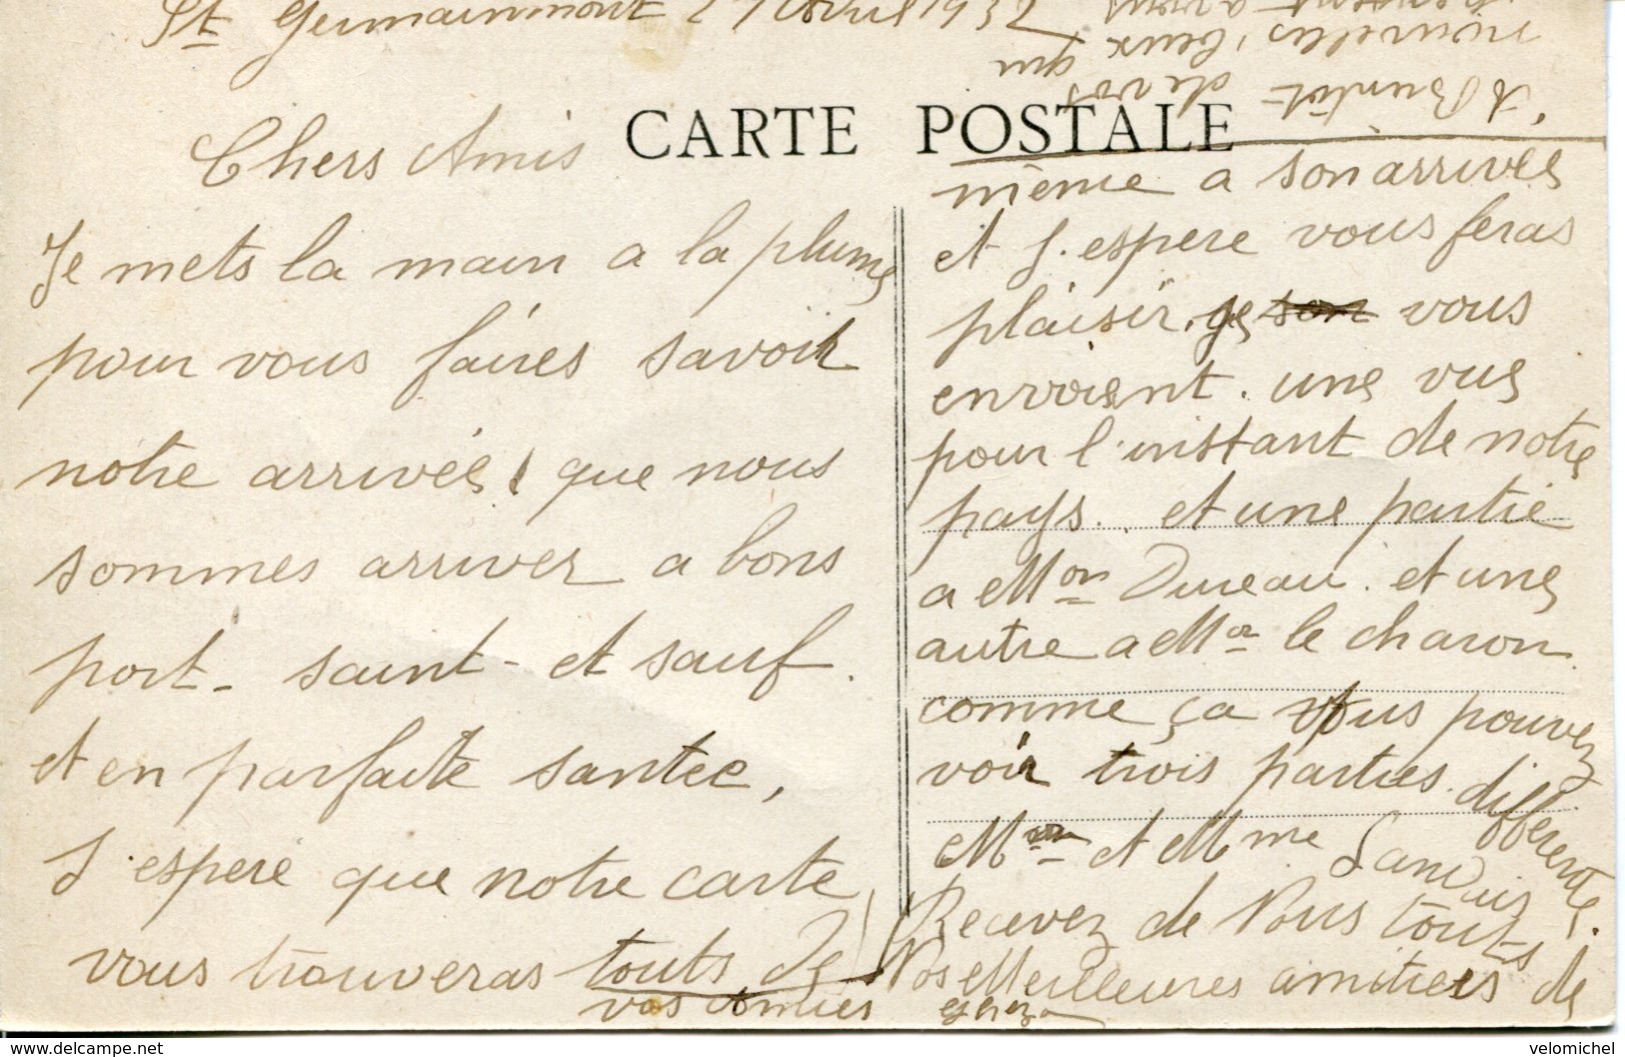 St Germainmont 27 Avril 1932
CARTE POSTALE
Chers Amis
Je mets la main a la plume
pour vous faires savoir
notre arrivée, que nous
sommes arriver a bons
port - saint - et sauf.
et en parfaite santee,
J'espere que notre carte
vous trouveras touts de
même a son arrivée
et J. espere vous feras
plaisir, je vous
envoient. une vue
pour l'instant de notre
pays. et une partie
a Mon Dureau. et une
autre a Mr le charon
comme ça vous pouvez
voir trois parties differente.
Mr et Mme Landuis
Recevez de Nous touts
Nos Meilleures amitiees de
vos amies
A Bientôt de vos
nouvelles, ceux qui
pensent a vous
velomichel
www.delcampe.net